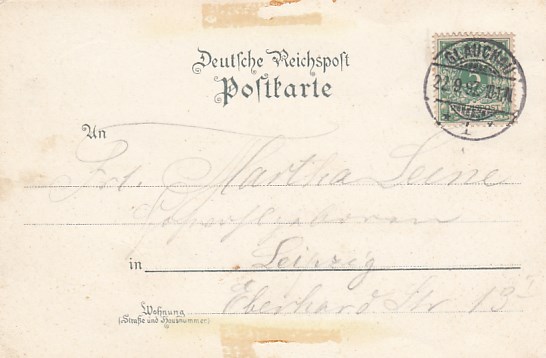 Deutsche Reichspost
Postkarte
GLAUCHAU
22.9.92.10-11N.
1
An
Frl. Martha Leine
Hochwohlgeboren
in Leipzig
Wohnung
(Straße und Hausnummer)
Eberhard Str 13